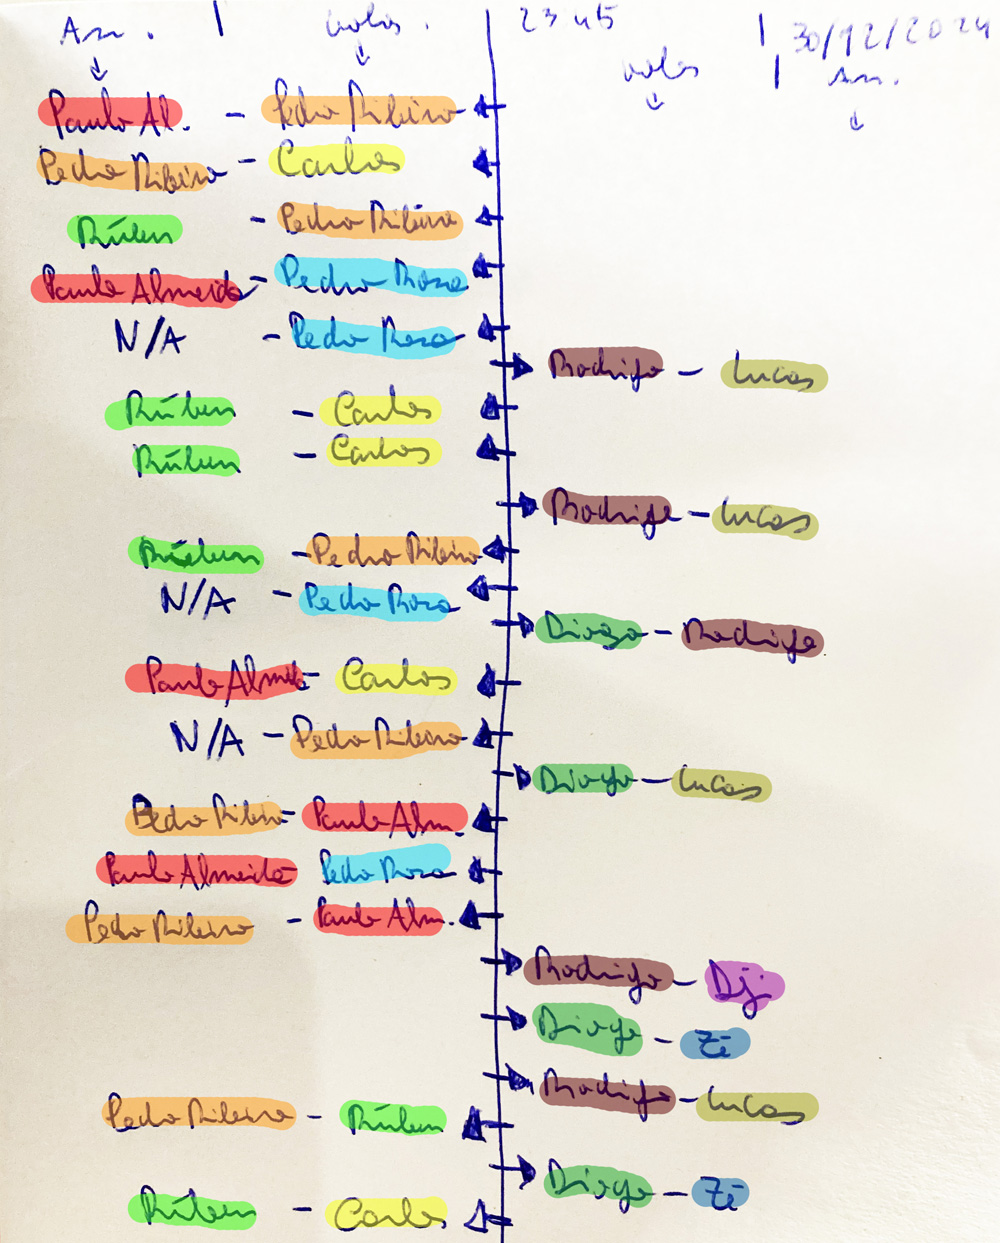 Ass. | Golos. | 23:45 | 30/12/2024
Golos | Ass.
Paulo Al. - Pedro Ribeiro
Pedro Ribeiro - Carlos
Rúben - Pedro Ribeiro
Paulo Almeida - Pedro Rosa
N/A - Pedro Rosa
Rodrigo - Lucas
Rúben - Carlos
Rúben - Carlos
Rodrigo - Lucas
Rúben - Pedro Ribeiro
N/A - Pedro Rosa
Diogo - Rodrigo
Paulo Almeida - Carlos
N/A - Pedro Ribeiro
Diogo - Lucas
Pedro Ribeiro - Paulo Alm.
Paulo Almeida Pedro Rosa
Pedro Ribeiro - Paulo Alm.
Rodrigo - Dj.
Diogo - Zé
Rodrigo - Lucas
Pedro Ribeiro - Rúben
Diogo - Zé
Rúben - Carlos